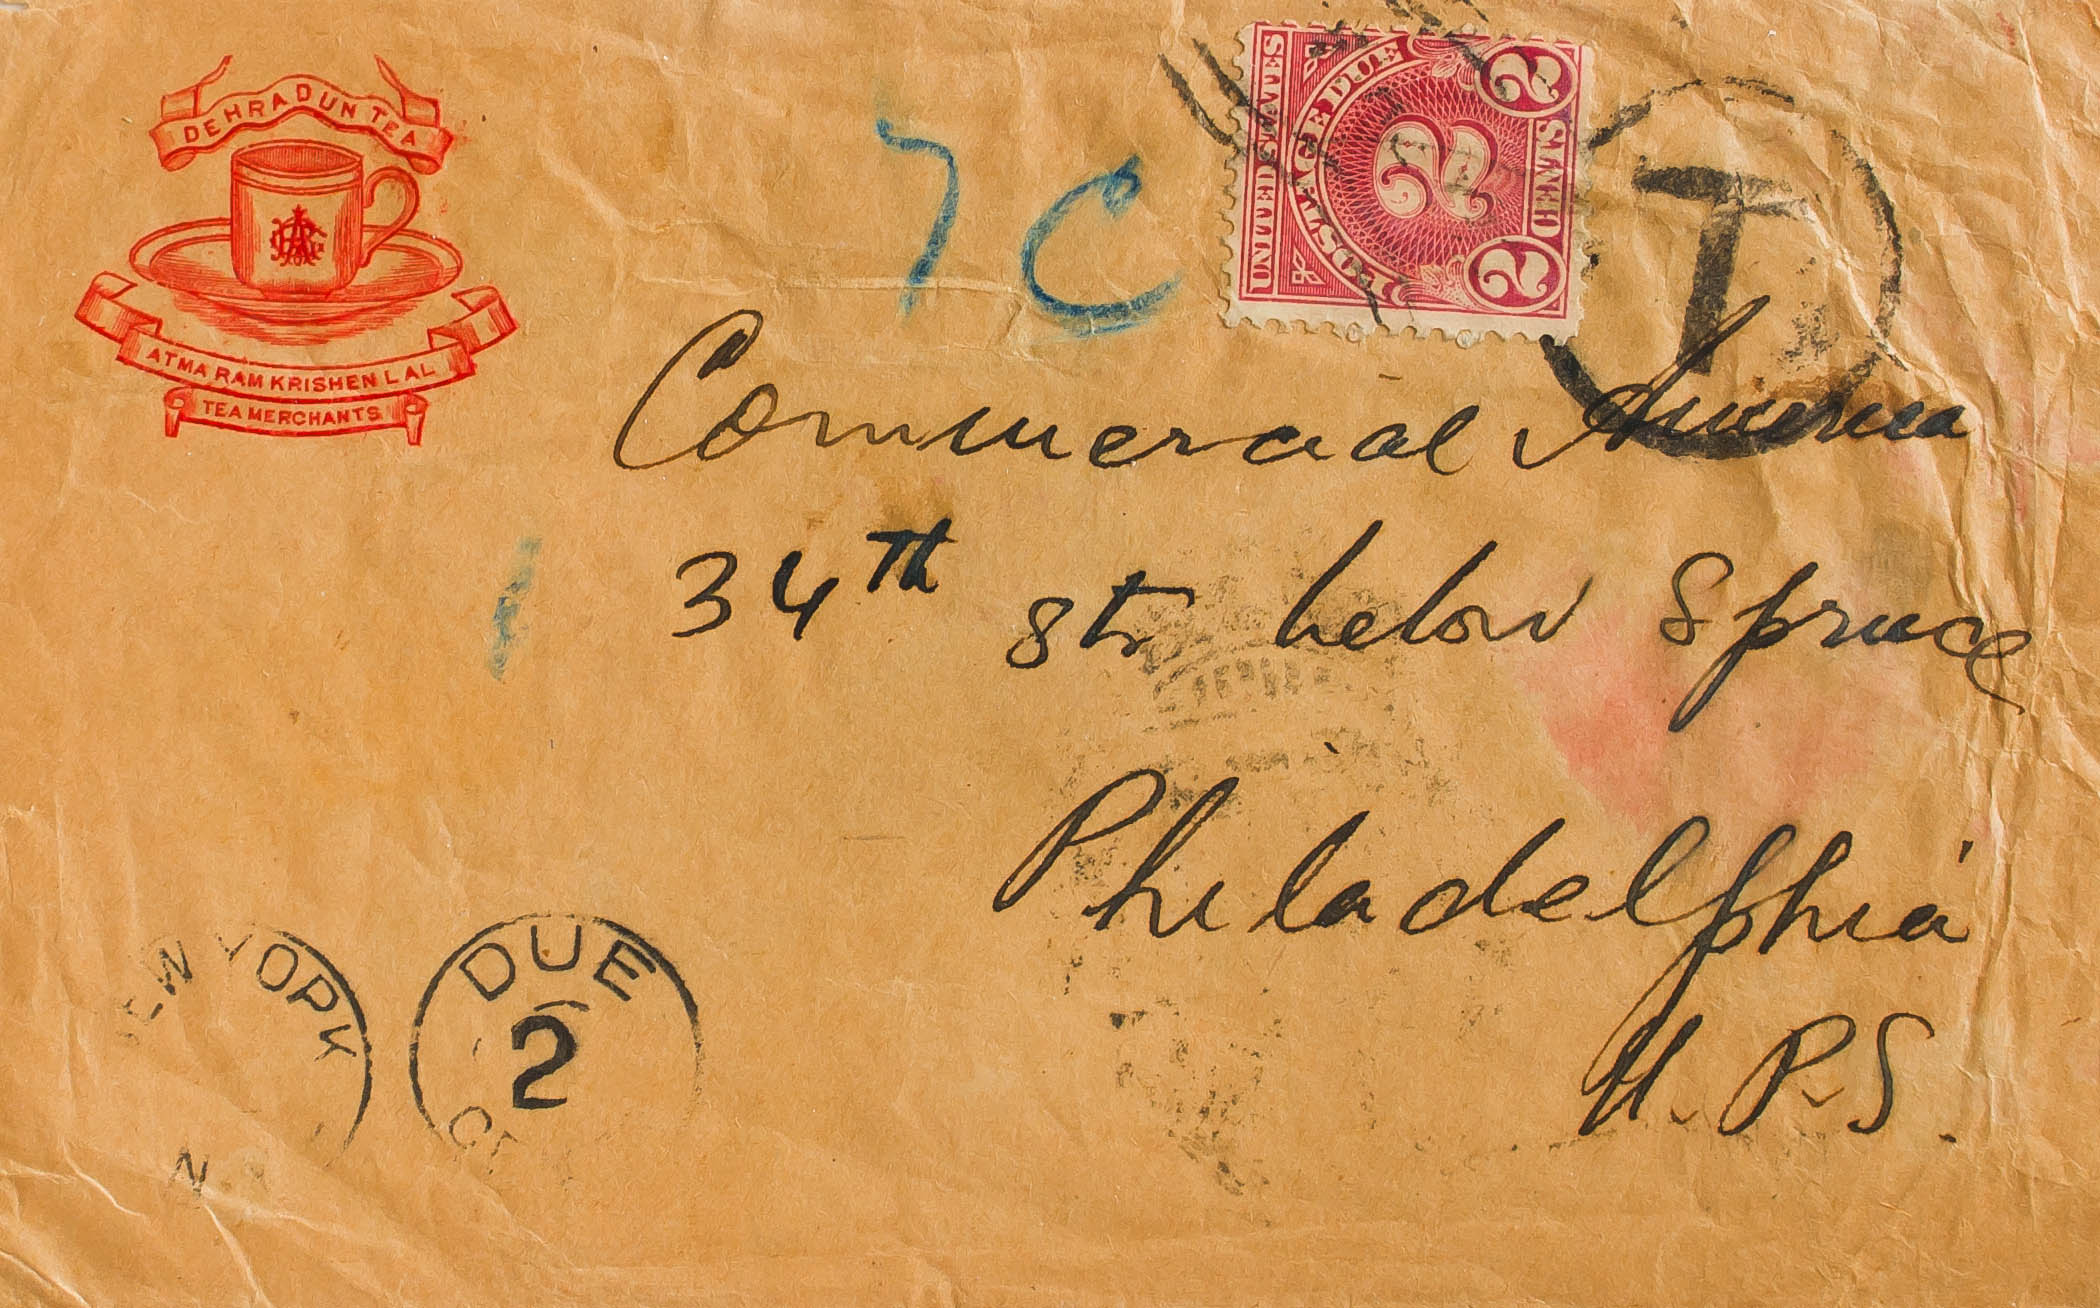 DEHRA DUN TEA
ATMA RAM KRISHEN LAL
TEA MERCHANTS
7C
UNITED STATES
POSTAGE DUE
2
2
2
T
Commercial America
34th Str below Spruce
Philadelphia
U.P.S.
NEW YORK
N
DUE
2